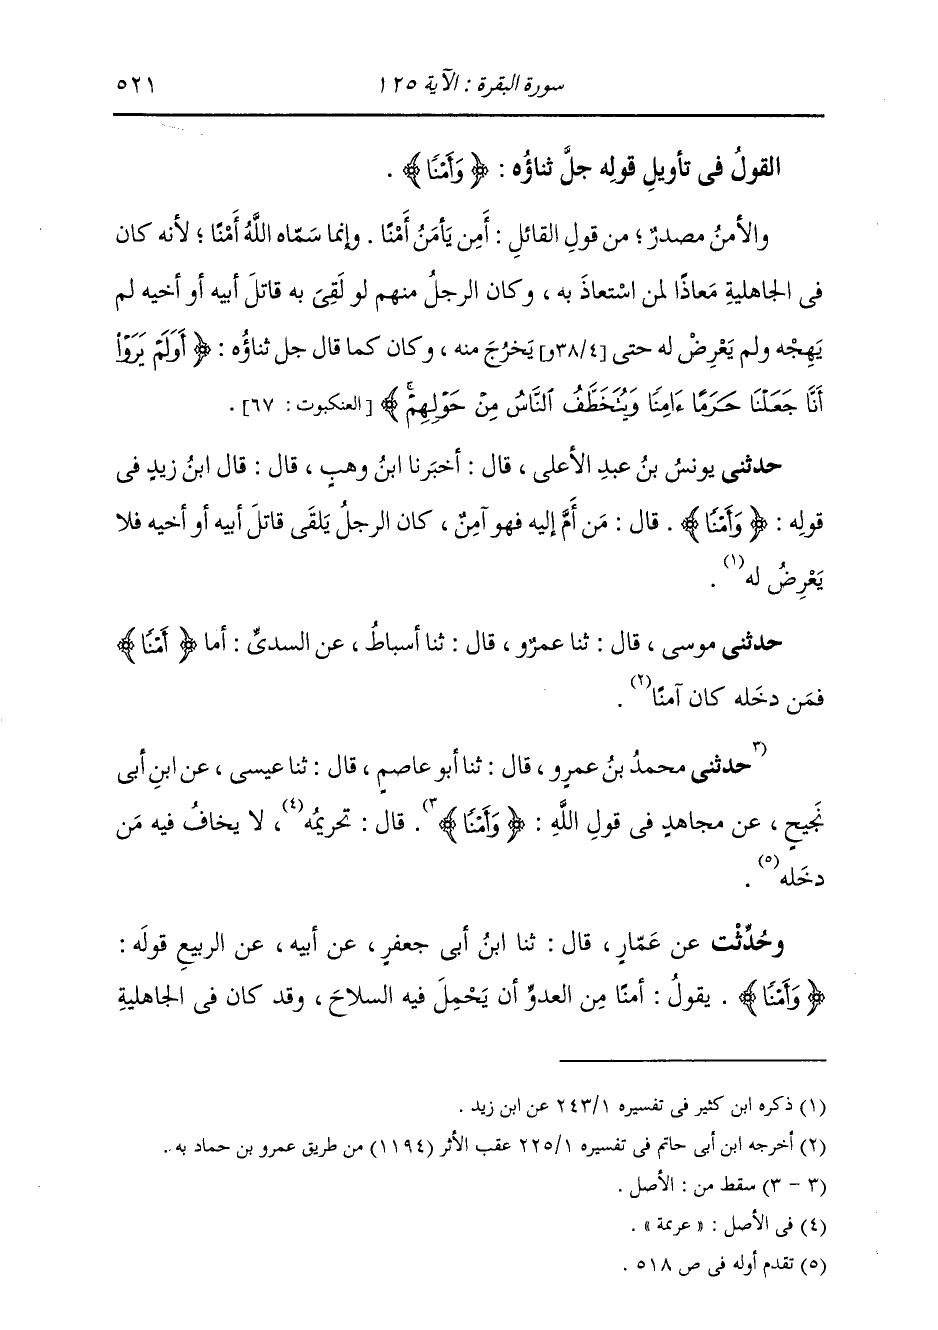 سورة البقرة : الآية ١٢٥ ٥٢١
القولُ فى تأويلِ قولِه جلَّ ثناؤُه : ﴿ وَأَمْنًا ﴾ .
والأمنُ مصدرٌ ؛ من قولِ القائلِ : أَمِن يَأمَنُ أَمْنًا . وإنما سَمّاه اللَّهُ أَمْنًا ؛ لأنه كان
فى الجاهليةِ مَعاذًا لمن اسْتعاذَ به ، وكان الرجلُ منهم لو لَقِىَ به قاتلَ أبيه أو أخيه لم
يَهِجْه ولم يَعْرِضْ له حتى [٣٨/٤و] يَخرُجَ منه ، وكان كما قال جل ثناؤُه : ﴿ أَوَلَمْ يَرَوْا
أَنَّا جَعَلْنَا حَرَمًا ءَامِنًا وَيُتَخَطَّفُ ٱلنَّاسُ مِنْ حَوْلِهِمْ ۚ ﴾ [العنكبوت : ٦٧] .
حدثنى يونسُ بنُ عبدِ الأعلى ، قال : أخبَرنا ابنُ وهبٍ ، قال : قال ابنُ زيدٍ فى
قولِه : ﴿ وَأَمْنًا ﴾ . قال : مَن أَمَّ إليه فهو آمِنٌ ، كان الرجلُ يَلقَى قاتلَ أبيه أو أخيه فلا
يَعْرِضُ له(١) .
حدثنى موسى ، قال : ثنا عمرٌو ، قال : ثنا أسباطُ ، عن السدىِّ : أما ﴿ أَمْنًا ﴾
فمَن دخَله كان آمنًا(٢) .
(٣حدثنى محمدُ بنُ عمرٍو ، قال : ثنا أبو عاصمٍ ، قال : ثنا عيسى ، عن ابنِ أبى
نَجيحٍ ، عن مجاهدٍ فى قولِ اللَّهِ : ﴿ وَأَمْنًا ﴾٣) . قال : تحريمُه(٤) ، لا يخافُ فيه مَن
دخَله(٥) .
وحُدِّثْت عن عَمّارٍ ، قال : ثنا ابنُ أبى جعفرٍ ، عن أبيه ، عن الربيعِ قولَه :
﴿ وَأَمْنًا ﴾ . يقولُ : أمنًا مِن العدوِّ أن يَحْمِلَ فيه السلاحَ ، وقد كان فى الجاهليةِ
(١) ذكره ابن كثير فى تفسيره ٢٤٣/١ عن ابن زيد .
(٢) أخرجه ابن أبى حاتم فى تفسيره ٢٢٥/١ عقب الأثر (١١٩٤) من طريق عمرو بن حماد به .
(٣ - ٣) سقط من : الأصل .
(٤) فى الأصل : « عربمة » .
(٥) تقدم أوله فى ص ٥١٨ .